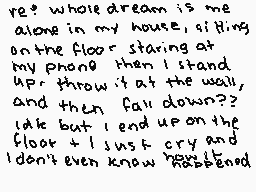 re: whole dream is me
alone in my house, sitting
on the floor staring at
my phone then I stand
up, throw it at the wall,
and then fall down??
idk but i end up on the
floor + I just cry and
I don't even know how it happened